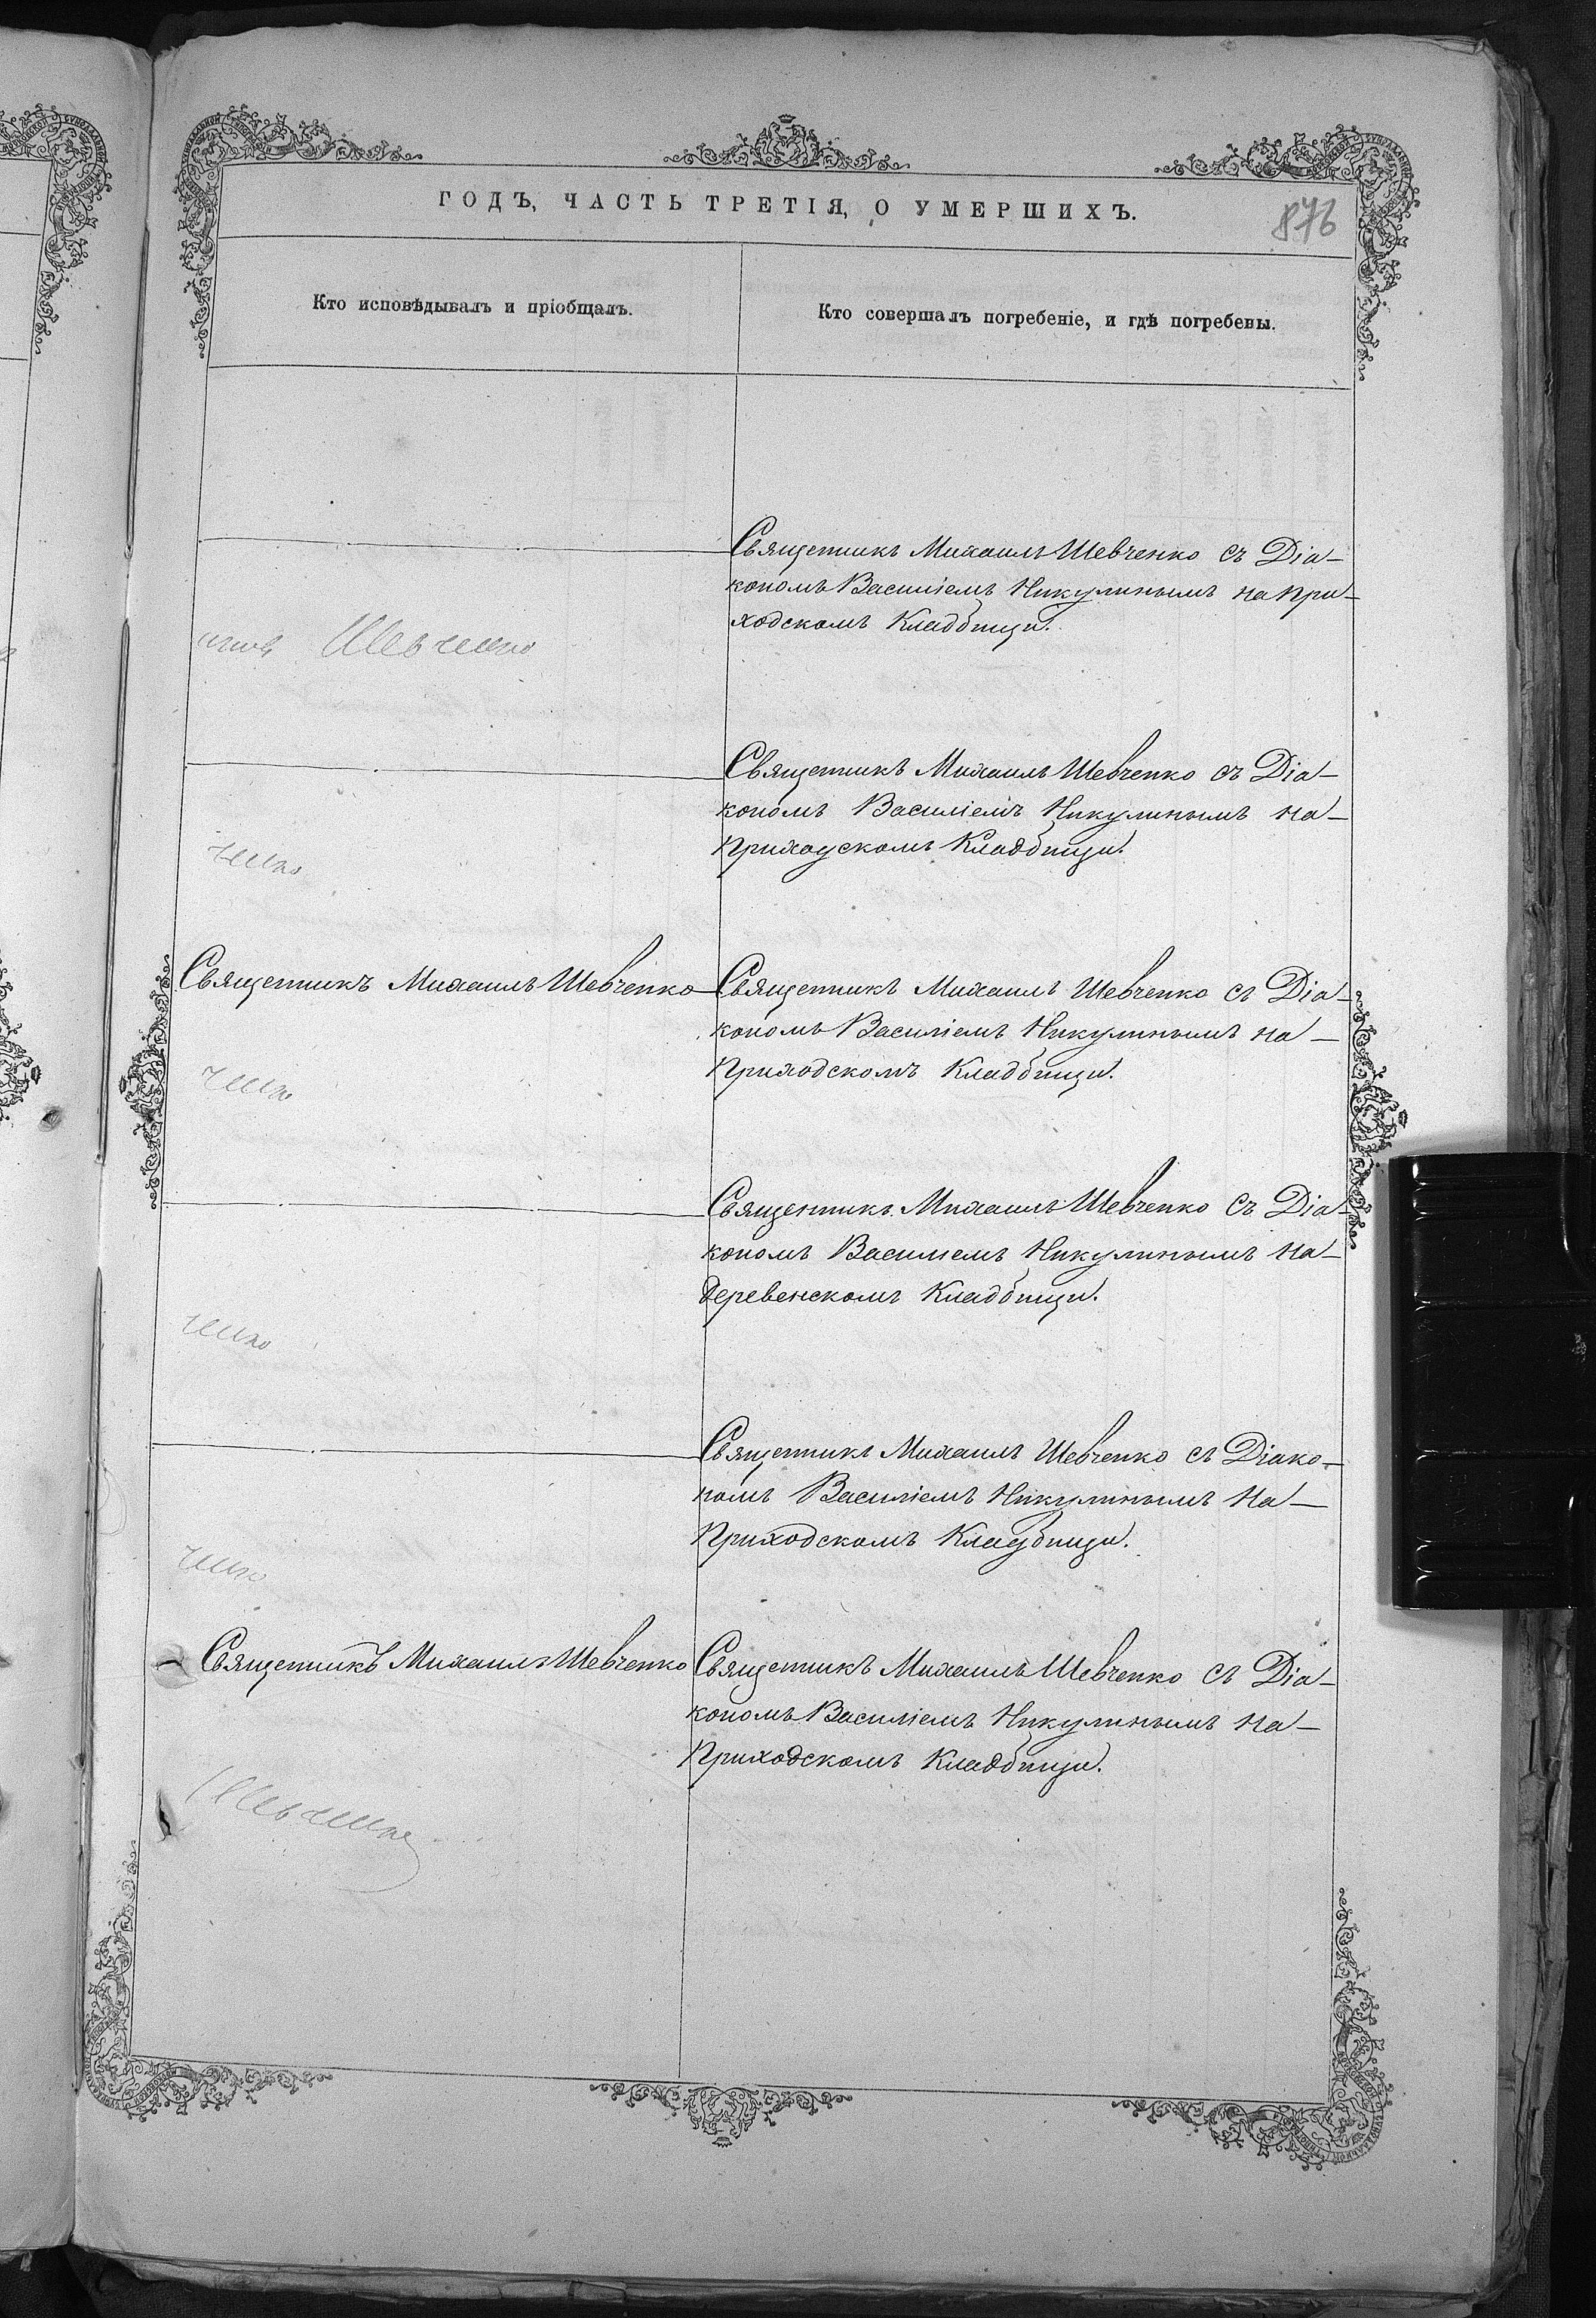 ГОДЪ, ЧАСТЬ ТРЕТІЯ, О УМЕРШИХЪ.
876
Кто исповѣдывалъ и пріобщалъ.
Кто совершалъ погребеніе, и гдѣ погребены.
Священникъ Михаилъ Шевченко съ Діа-
кономъ Василіемъ Никулинымъ на при-
ходскомъ Кладбищи.
Шевченко
Священникъ Михаилъ Шевченко съ Діа-
кономъ Василіемъ Никулинымъ на-
Приходскомъ Кладбищи.
ченко
Священникъ Михаилъ Шевченко
Священникъ Михаилъ Шевченко съ Діа-
кономъ Василіемъ Никулинымъ на-
Приходскомъ Кладбищи.
ченко
Священникъ Михаилъ Шевченко Съ Діа-
кономъ Василіемъ Никулинымъ на-
деревенскомъ Кладбищи.
ченко
Священникъ Михаилъ Шевченко съ Діако-
номъ Василіемъ Никулинымъ На-
Приходскомъ Кладбищи.
ченко
Священникъ Михаилъ Шевченко
Священникъ Михаилъ Шевченко съ Діа-
кономъ Василіемъ Никулинымъ На-
Приходскомъ Кладбищи.
Шевченко